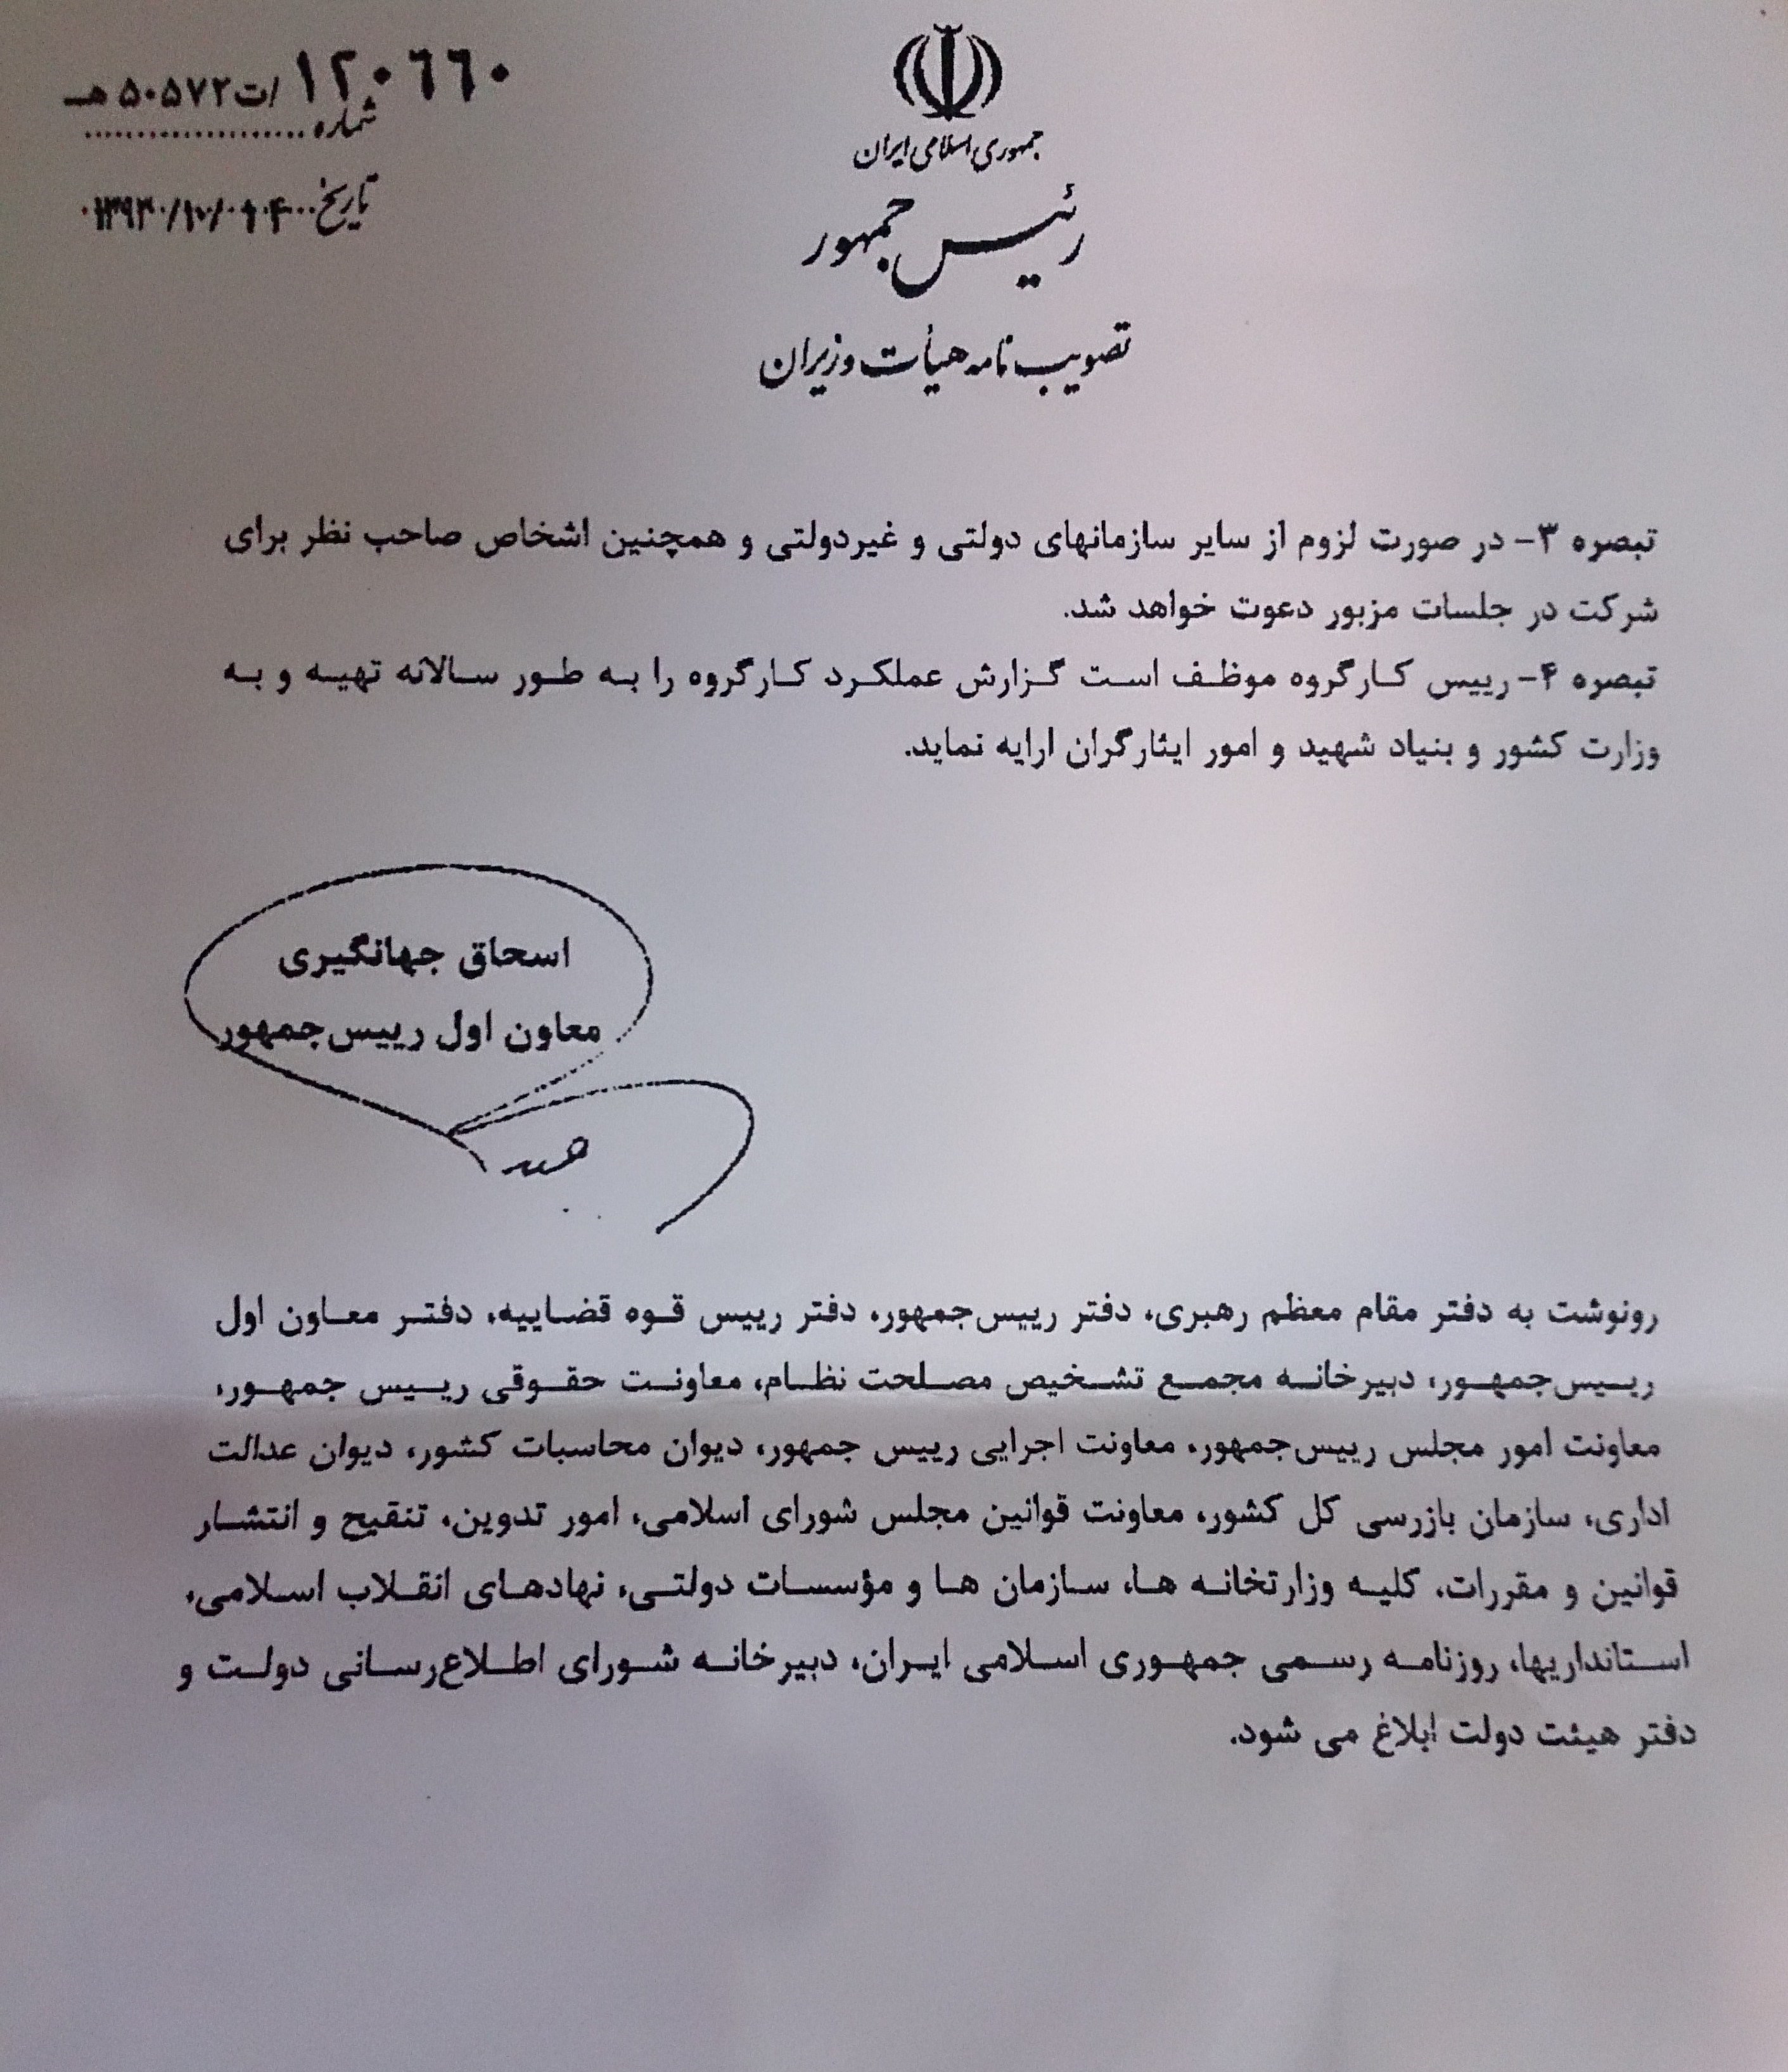 ۱۲۰٦٦۰/ت۵۰۵۷۲هـ
شماره
تاریخ ۱۳۹۳/۱۰/۰۴
جمهوری اسلامی ایران
رئیس جمهور
تصویب نامه هیأت وزیران
تبصره ۳- در صورت لزوم از سایر سازمانهای دولتی و غیردولتی و همچنین اشخاص صاحب نظر برای
شرکت در جلسات مزبور دعوت خواهد شد.
تبصره ۴- رییس کارگروه موظف است گزارش عملکرد کارگروه را به طور سالانه تهیه و به
وزارت کشور و بنیاد شهید و امور ایثارگران ارایه نماید.
اسحاق جهانگیری
معاون اول رییس‌جمهور
رونوشت به دفتر مقام معظم رهبری، دفتر رییس‌جمهور، دفتر رییس قوه قضاییه، دفتر معاون اول
رییس‌جمهور، دبیرخانه مجمع تشخیص مصلحت نظام، معاونت حقوقی رییس جمهور،
معاونت امور مجلس رییس‌جمهور، معاونت اجرایی رییس جمهور، دیوان محاسبات کشور، دیوان عدالت
اداری، سازمان بازرسی کل کشور، معاونت قوانین مجلس شورای اسلامی، امور تدوین، تنقیح و انتشار
قوانین و مقررات، کلیه وزارتخانه ها، سازمان ها و مؤسسات دولتی، نهادهای انقلاب اسلامی،
استانداریها، روزنامه رسمی جمهوری اسلامی ایران، دبیرخانه شورای اطلاع‌رسانی دولت و
دفتر هیئت دولت ابلاغ می شود.